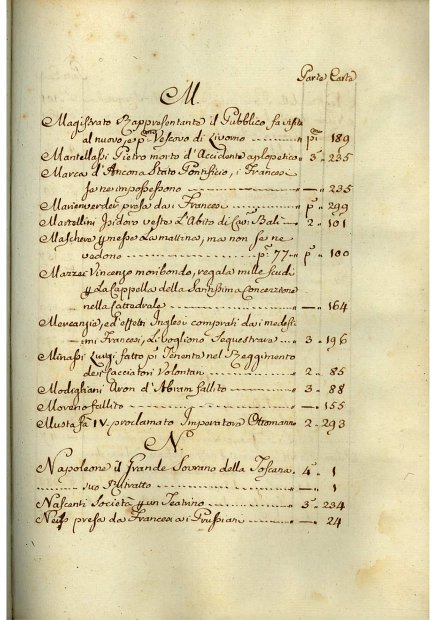 Parte Carte
M.
Magistrato Rappresentante il Pubblico fa visita
al nuovo, e pmo Vescovo di Livorno pma 189
Mantellassi Pietro morto d'Accidente apopletico 3a 235
Marca d'Ancona Stato Pontificio, i Francesi
se ne impossessono " 235
Marienverder presa dai Francesi pa 299
Martellini Isidoro veste L'Abito di Cavr Balì 2 101
Maschere permesse La mattina, ma non se ne
vedono pa 77 pa 100
Mazzei Vincenzo moribondo, regala mille scudi
p La Cappella della Santissima Concezzione
nella Cattedrale 164
Mercanzie, ed effetti Inglesi comprati dai medesi=
imi Francesi, li vogliono Sequestrare 3 196
Minassi Luigi fatto pi Tenente nel Reggimento
dei Cacciatori Volontari 2 85
Modigliani Aron d'Abram fallito 3 88
Moreno fallito 155
Mustafà IV. proclamato Imperatore Ottomanno 2 293
N.
Napoleone il Grande Sovrano della Toscana 4a 1
suo Ritratto 1
Nascenti Società p un Teatrino 3a 234
Neiss presa da Francesi ai Prussiani 24